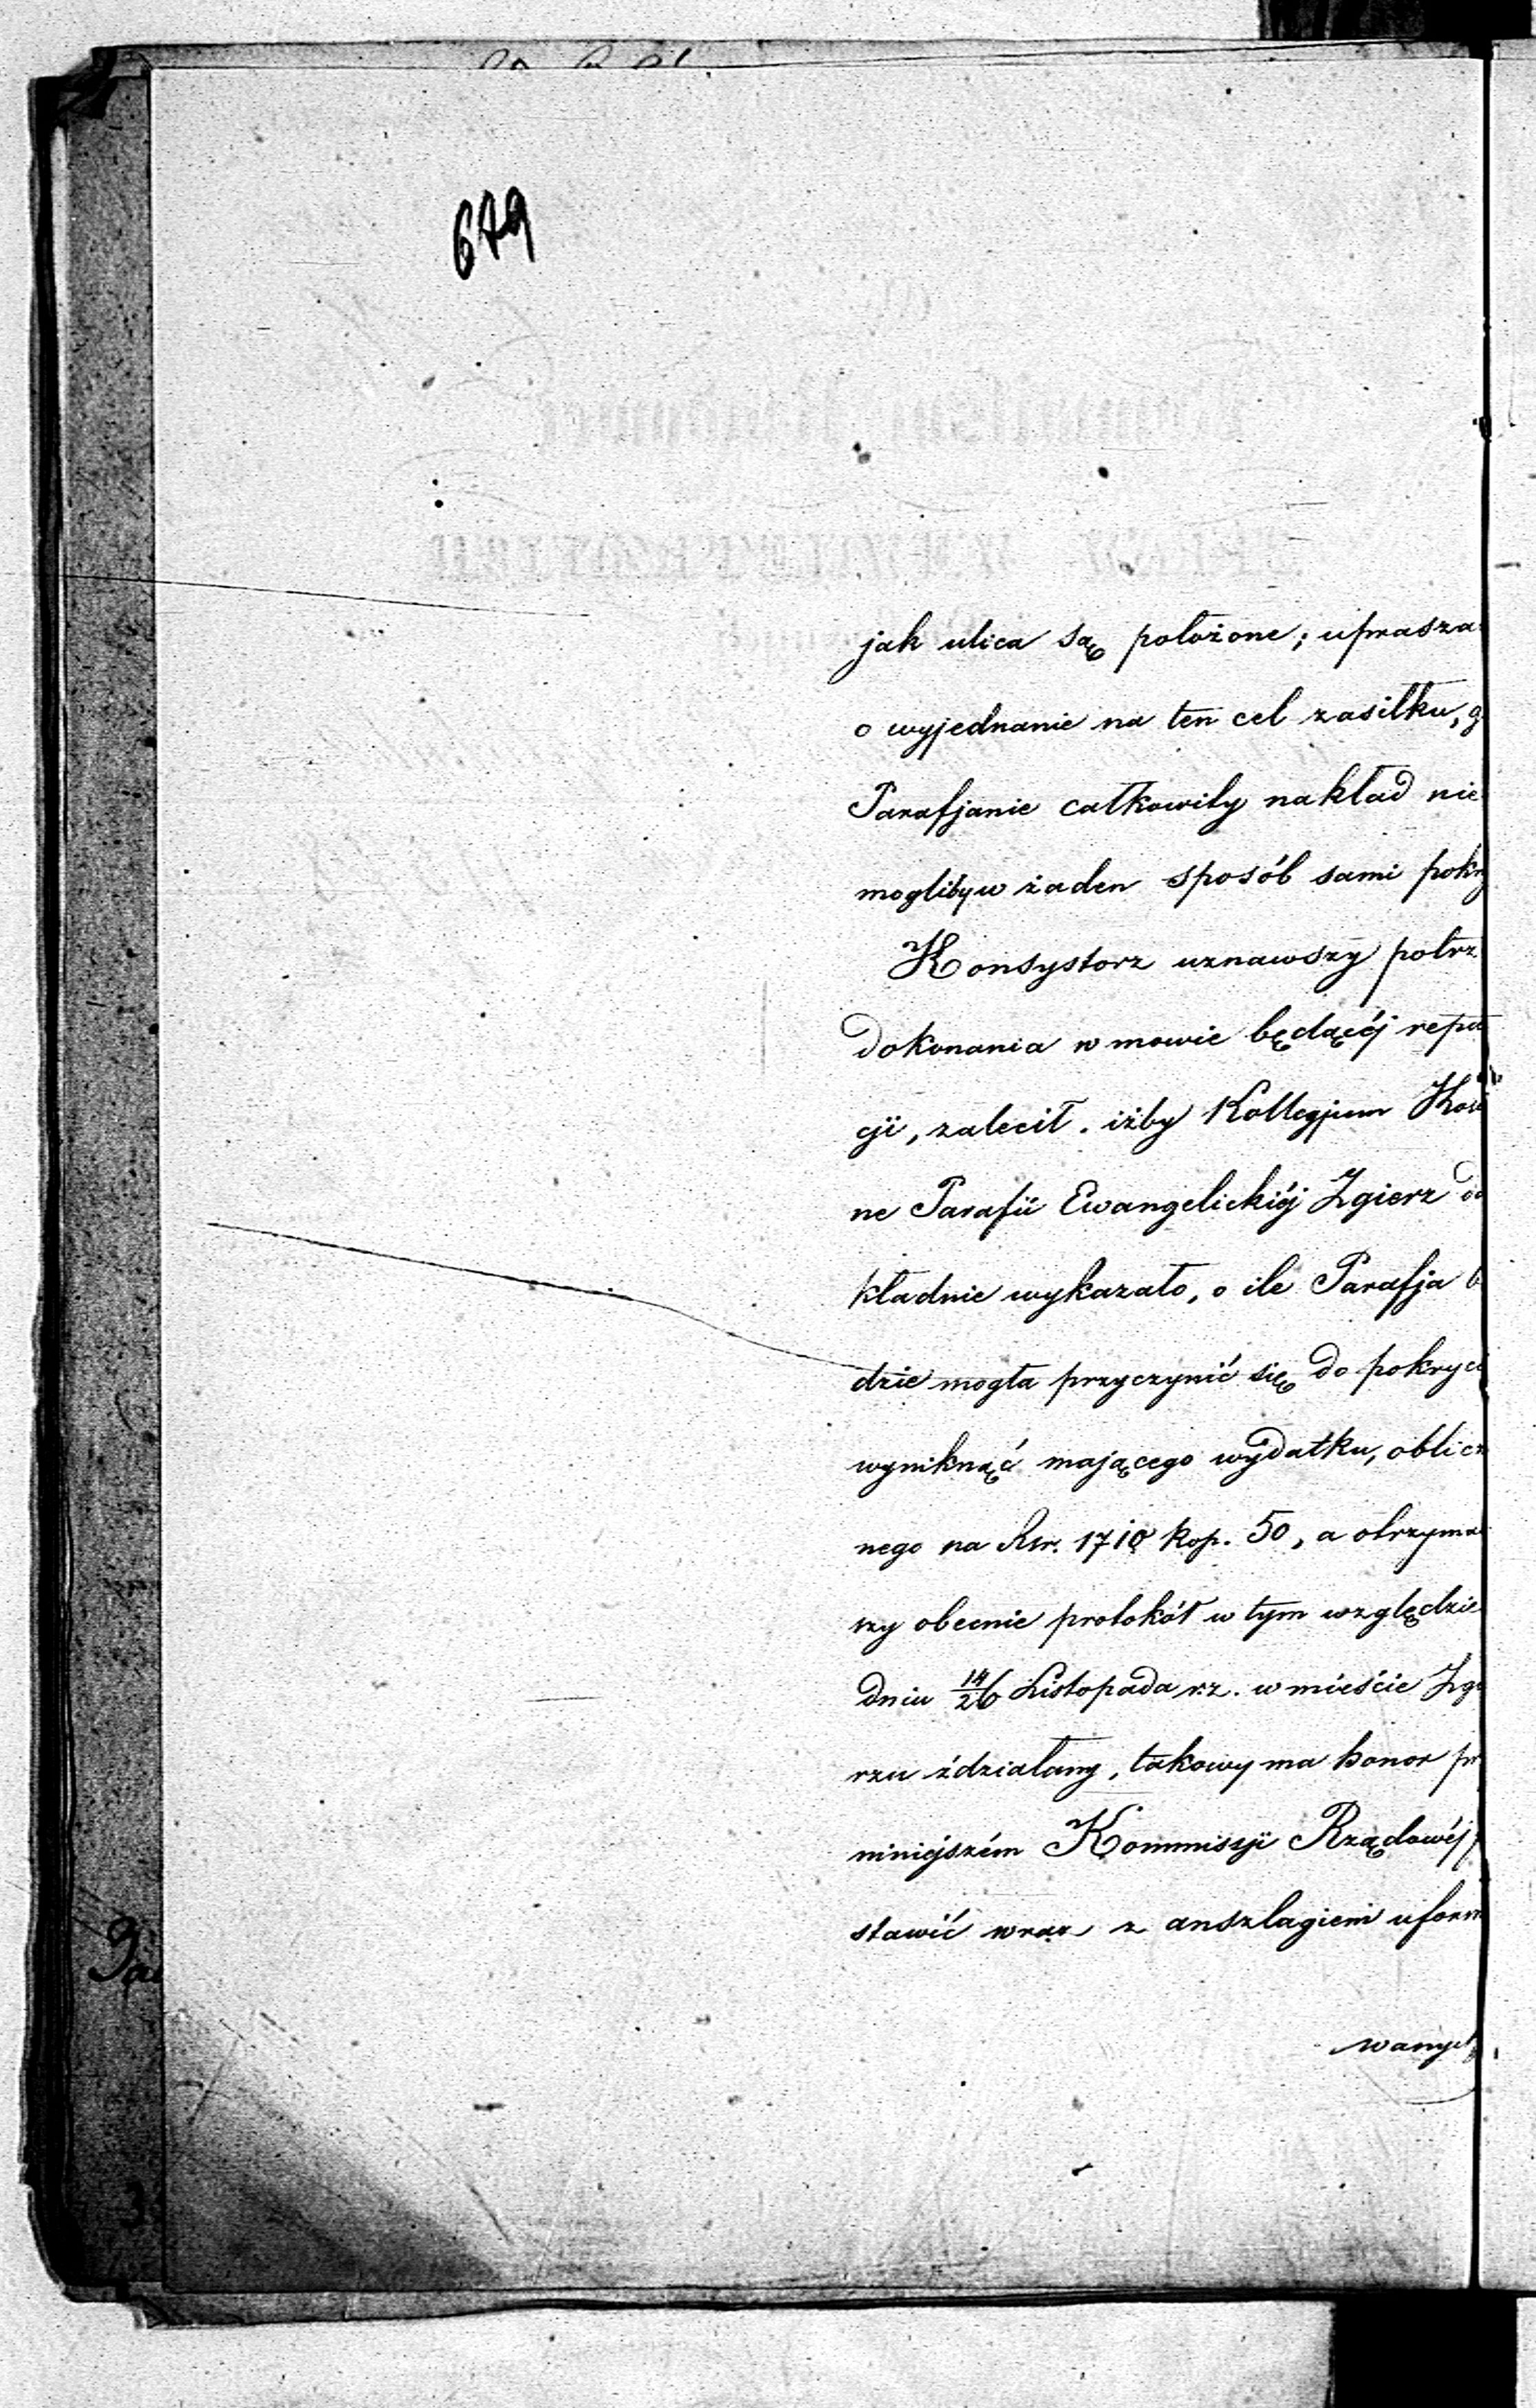 679
jak ulica są położone; uprasza
o wyjednanie na ten cel zasiłku, g
Parafjanie całkowity nakład nie
mogliby w żaden sposób sami pokry
Konsystorz uznawszy potrz
dokonania w mowie będącéj repa
cji, zalecił, iżby Kollegjum Kości
ne Parafii Ewangelickiéj Zgierz do
kładnie wykazało, o ile Parafja b
dzie mogła przyczynić się do pokryci
wyniknąć mającego wydatku, oblicz
nego na Rsr. 1710 kop. 50, a otrzyma
szy obecnie protokół w tym względzie
dniu 14/26 Listopada r.z. w mieście Zgi
rzu zdziałany, takowy ma honor pr
niniejszém Kommissji Rządowéj
stawić wraz z anszlagiem uform
wanych